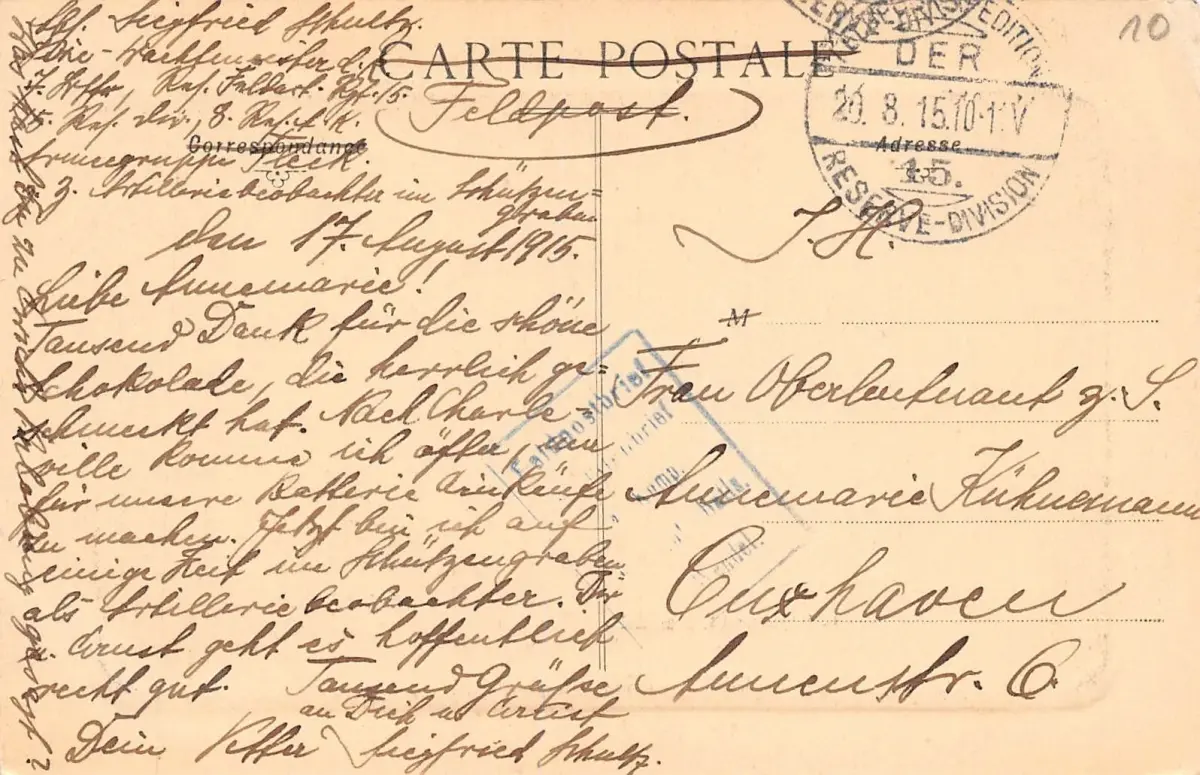 Abs. Siegfried Schultz.
Vize-Wachtmeister d. R.
7. Battr., Res. Feldart. Rgt. 15.
15. Res. Div., 8. Res. A. K.
Armeegruppe Fleck.
z. Z. Artilleriebeobachter im Schützen=
graben
den 17. August 1915.
Liebe Annemarie!
Tausend Dank für die schöne
Schokolade, die herrlich ge=
schmeckt hat. Nach Charle-
ville komme ich öfter, um
für unsere Batterie Einkäufe
zu machen. Jetzt bin ich auf
einige Zeit im Schützengraben
als Artilleriebeobachter. Dir
u. Ernst geht es hoffentlich
recht gut. Tausend Grüße
an Dich u. Ernst
Dein Vetter Siegfried Schultz.
Was hast Du zu Ernsts Belobung gesagt?
CARTE POSTALE
Feldpost.
Correspondance
Adresse
DER
20. 8. 15. 10-11 V
15.
RESERVE-DIVISION
10
S. H.
M
Frau Oberleutnant z. S.
Annemarie Kühnemann
Cuxhaven
Annenstr. 6.
Feldpostbrief